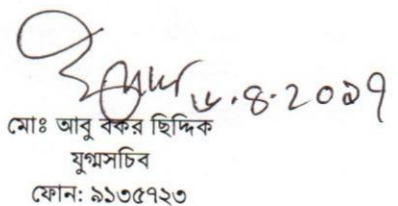 ৮.৪.২০১৭
মোঃ আবু বকর ছিদ্দিক
যুগ্মসচিব
ফোন: ৯১৩৫৭২৩